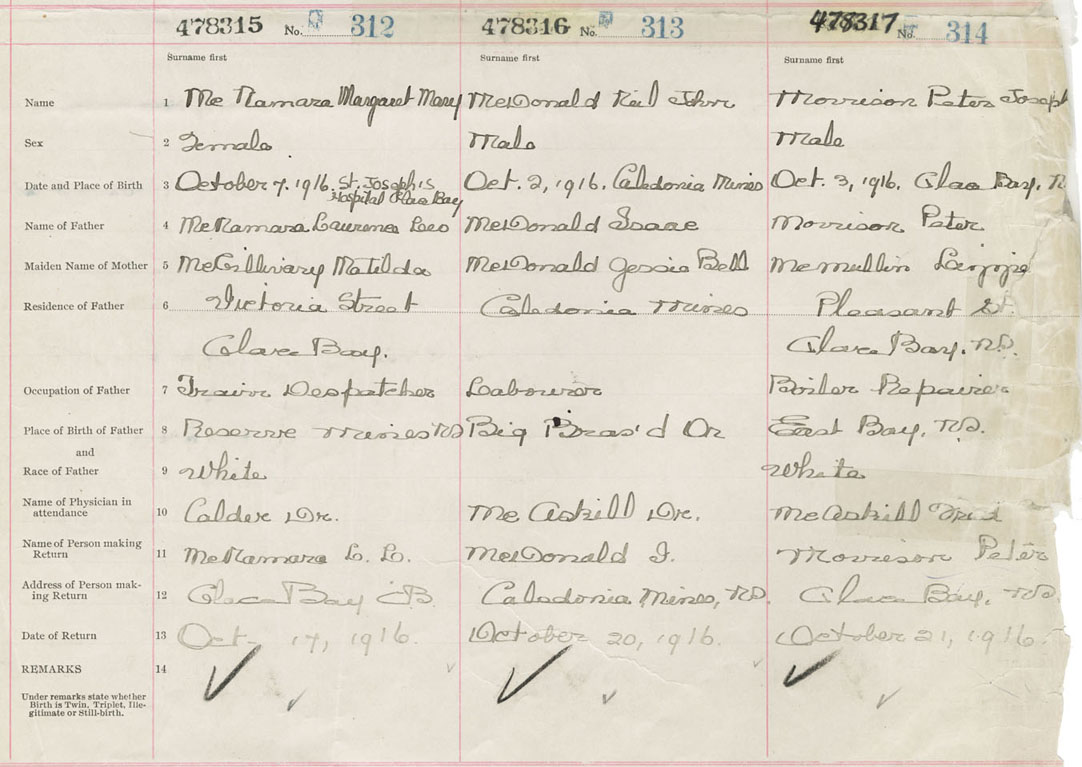 478315 No. 312 478316 No. 313 478317 No. 314
Surname first Surname first Surname first
Name 1 McNamara Margaret Mary McDonald Neil John Morrison Peter Joseph
Sex 2 Female Male Male
Date and Place of Birth 3 October 7. 1916. St. Joseph's Oct. 2, 1916. Caledonia Mines Oct. 3, 1916. Glace Bay,
Hospital Glace Bay
Name of Father 4 McNamara Laurence Leo McDonald Isaac Morrison Peter
Maiden Name of Mother 5 McGillivary Matilda McDonald Jessie Bell McMullin Lizzie
Residence of Father 6 Victoria Street Caledonia Mines Pleasant St.
Glace Bay. Glace Bay, N.S.
Occupation of Father 7 Train Despatcher Labourer Boiler Repairer
Place of Birth of Father 8 Reserve Mines NS Big Bras'd Or East Bay, N.S.
and
Race of Father 9 White White
Name of Physician in
attendance 10 Calder Dr. McAskill Dr. McAskill
Name of Person making
Return 11 McNamara L. L. McDonald I. Morrison Peter
Address of Person mak-
ing Return 12 Glace Bay CB Caledonia Mines, N.S. Glace Bay, N.S.
Date of Return 13 Oct- 17, 1916. October 20, 1916. October 21, 1916.
REMARKS 14
Under remarks state whether
Birth is Twin, Triplet, Ille-
gitimate or Still-birth.